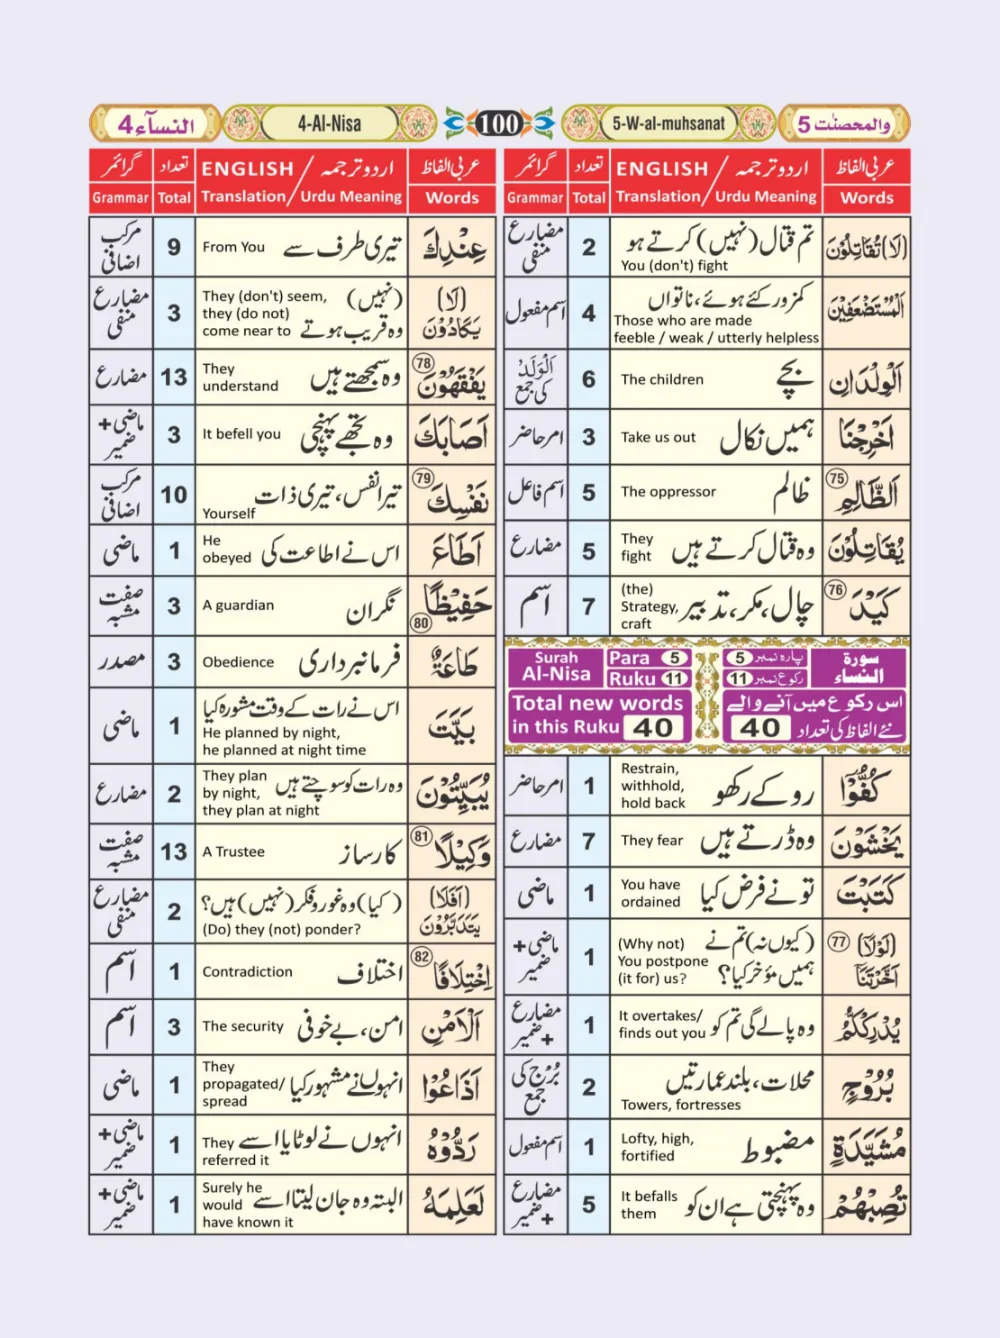 والمحصنٰت 5
5-W-al-muhsanat
100
4-Al-Nisa
النسآء 4
عربی الفاظ
اردو ترجمہ / ENGLISH
تعداد
گرائمر
Words
Translation / Urdu Meaning
Total
Grammar
(لَا) تُقَاتِلُوْنَ
تم قتال (نہیں) کرتے ہو
You (don't) fight
2
مضارع
منفی
اَلْمُسْتَضْعَفِيْنَ
کمزور کئے ہوئے، ناتواں
Those who are made
feeble / weak / utterly helpless
4
اسم مفعول
اَلْوِلْدَانِ
بچے
The children
6
اَلْوَلَدُ
کی جمع
اَخْرِجْنَا
ہمیں نکال
Take us out
3
امر حاضر
75
اَلظَّالِمِ
ظالم
The oppressor
5
اسم فاعل
يُقَاتِلُوْنَ
وہ قتال کرتے ہیں
They
fight
5
مضارع
76
كَيْدَ
چال، مکر، تدبیر
(the)
Strategy,
craft
7
اسم
سورة
النساء
پارہ نمبر 5
رکوع نمبر 11
Para 5
Ruku 11
Surah
Al-Nisa
اس رکوع میں آنے والے
نئے الفاظ کی تعداد 40
Total new words
in this Ruku 40
كُفُّوْٓا
روکے رکھو
Restrain,
withhold,
hold back
1
امر حاضر
يَخْشَوْنَ
وہ ڈرتے ہیں
They fear
7
مضارع
كَتَبْتَ
تو نے فرض کیا
You have
ordained
1
ماضی
77
(لَوْلَآ)
اَخَّرْتَنَآ
(کیوں نہ) تم نے
ہمیں مؤخر کیا؟
(Why not)
You postpone
(it for) us?
1
ماضی +
ضمیر
يُدْرِكْكُّمُ
وہ پالے گی تم کو
It overtakes/
finds out you
1
مضارع
+ ضمیر
بُرُوْجٍ
محلات، بلند عمارتیں
Towers, fortresses
2
بُرْجٌ کی
جمع
مُشَيَّدَةٍ
مضبوط
Lofty, high,
fortified
1
اسم مفعول
تُصِبْهُمْ
وہ پہنچتی ہے ان کو
It befalls
them
5
مضارع
+ ضمیر
عربی الفاظ
اردو ترجمہ / ENGLISH
تعداد
گرائمر
Words
Translation / Urdu Meaning
Total
Grammar
عِنْدِكَ
تیری طرف سے
From You
9
مرکب
اضافی
(لَا)
يَكَادُوْنَ
(نہیں)
وہ قریب ہوتے
They (don't) seem,
they (do not)
come near to
3
مضارع
منفی
78
يَفْقَهُوْنَ
وہ سمجھتے ہیں
They
understand
13
مضارع
اَصَابَكَ
وہ تجھے پہنچی
It befell you
3
ماضی +
ضمیر
79
نَفْسِكَ
تیرا نفس، تیری ذات
Yourself
10
مرکب
اضافی
اَطَاعَ
اس نے اطاعت کی
He
obeyed
1
ماضی
حَفِيْظًا
80
نگران
A guardian
3
صفت
مشبہ
طَاعَةٌ
فرمانبرداری
Obedience
3
مصدر
بَيَّتَ
اس نے رات کے وقت مشورہ کیا
He planned by night,
he planned at night time
1
ماضی
يُبَيِّتُوْنَ
وہ رات کو سوچتے ہیں
They plan
by night,
they plan at night
2
مضارع
81
وَكِيْلًا
کارساز
A Trustee
13
صفت
مشبہ
(اَفَلَا)
يَتَدَبَّرُوْنَ
(کیا) وہ غور و فکر (نہیں) ہیں؟
(Do) they (not) ponder?
2
مضارع
منفی
82
اِخْتِلَافًا
اختلاف
Contradiction
1
اسم
اَلْاَمْنِ
امن، بے خوفی
The security
3
اسم
اَذَاعُوْا
انہوں نے مشہور کیا
They
propagated/
spread
1
ماضی
رَدُّوْهُ
انہوں نے لوٹایا اسے
They
referred it
1
ماضی +
ضمیر
لَعَلِمَهُ
البتہ وہ جان لیتا اسے
Surely he
would
have known it
1
ماضی +
ضمیر